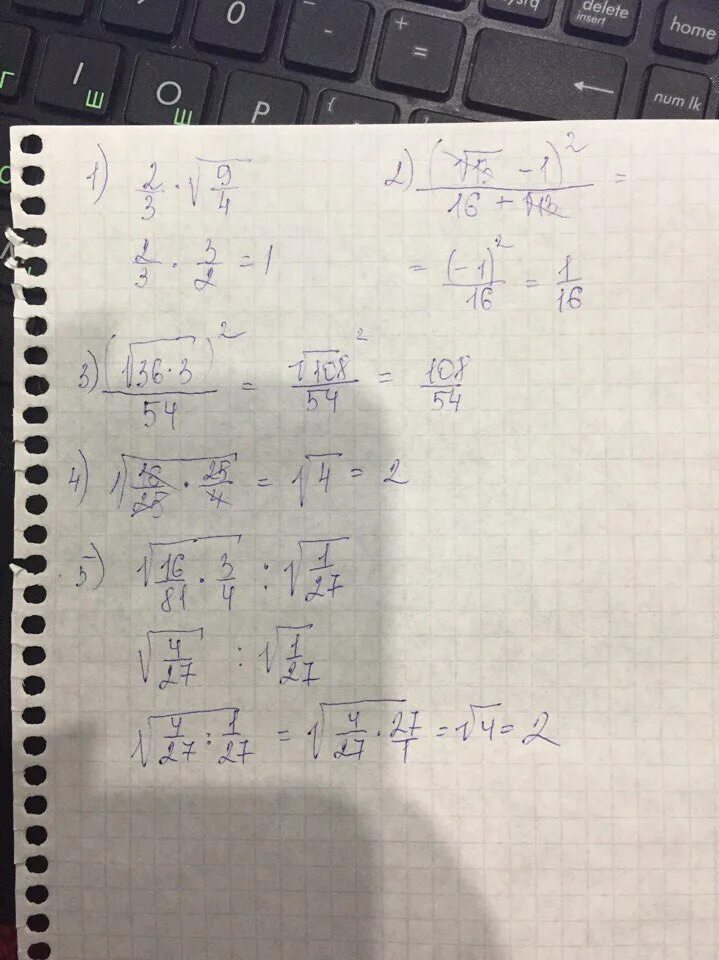 0 - + = delete insert home
І Ш О Щ Р { num lk
1) 2/3 · √(9/4)
2/3 · 3/2 = 1
2) (√13 - 1)² / (16 + √13) =
= (-1)² / 16 = 1/16
3) (√(36·3))² / 54 = √108² / 54 = 108/54
4) √(16/25 · 25/4) = √4 = 2
5) √(16/81 · 3/4) : √(1/27)
√(4/27) : √(1/27)
√(4/27 : 1/27) = √(4/27 · 27/1) = √4 = 2